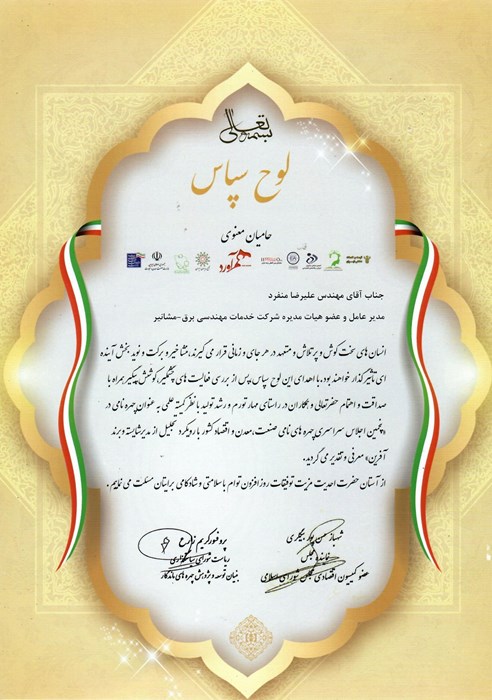 بسمه تعالی
لوح سپاس
حامیان معنوی
مهرآورد
جناب آقای مهندس علیرضا منفرد
مدیر عامل و عضو هیات مدیره شرکت خدمات مهندسی برق-مشانیر
انسان های سخت کوش و پر تلاش و متعهد در هر جای و زمانی قرار می گیرند، منشا خیر و برکت و نوید بخش آینده
ای تاثیر گذار خواهند بود. با اهدای این لوح سپاس، پس از بررسی فعالیت های چشمگیر، کوشش پیگیر همراه با
صداقت و اهتمام حضرتعالی و همکاران در راستای مهار تورم و رشد تولید با نظر کمیته علمی به عنوان چهره نامی در
«پنجمین اجلاس سراسری چهره های نامی صنعت، معدن و اقتصاد کشور با رویکرد تجلیل از مدیر شایسته و برند
آفرین» معرفی و تقدیر می گردید.
از آستان حضرت احدیت مزیت توفیقات روز افزون توام با سلامتی و شادکامی برایتان مسئلت می نماییم.
شهباز حسن پور بیگلری
نماینده مجلس
عضو کمیسیون اقتصادی مجلس شورای اسلامی
پروفسور کریم
ریاست شورای سیاستگذاری
بنیان توسعه و پژوهش چهره های ماندگار